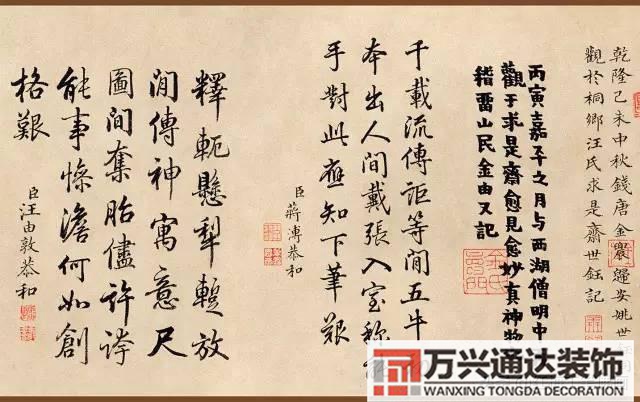 乾隆己未中秋錢唐金歸安姚世
觀於桐鄉汪氏求是齋世鈺記
丙寅嘉平之月與西湖僧明中
觀于求是齋愈見愈妙真神物
稽畱山民金由又記
千載流傳詎等閒五牛
本出人間戴張入室称
手對此應知下筆艱
臣蔣溥恭和
釋軛懸犁蹔放
閒傳神寓意尺
圖間奪胎儘許誇
能事慘澹何如創
格艱
臣汪由敦恭和
万兴通达装饰
WANXING TONGDA DECORATION